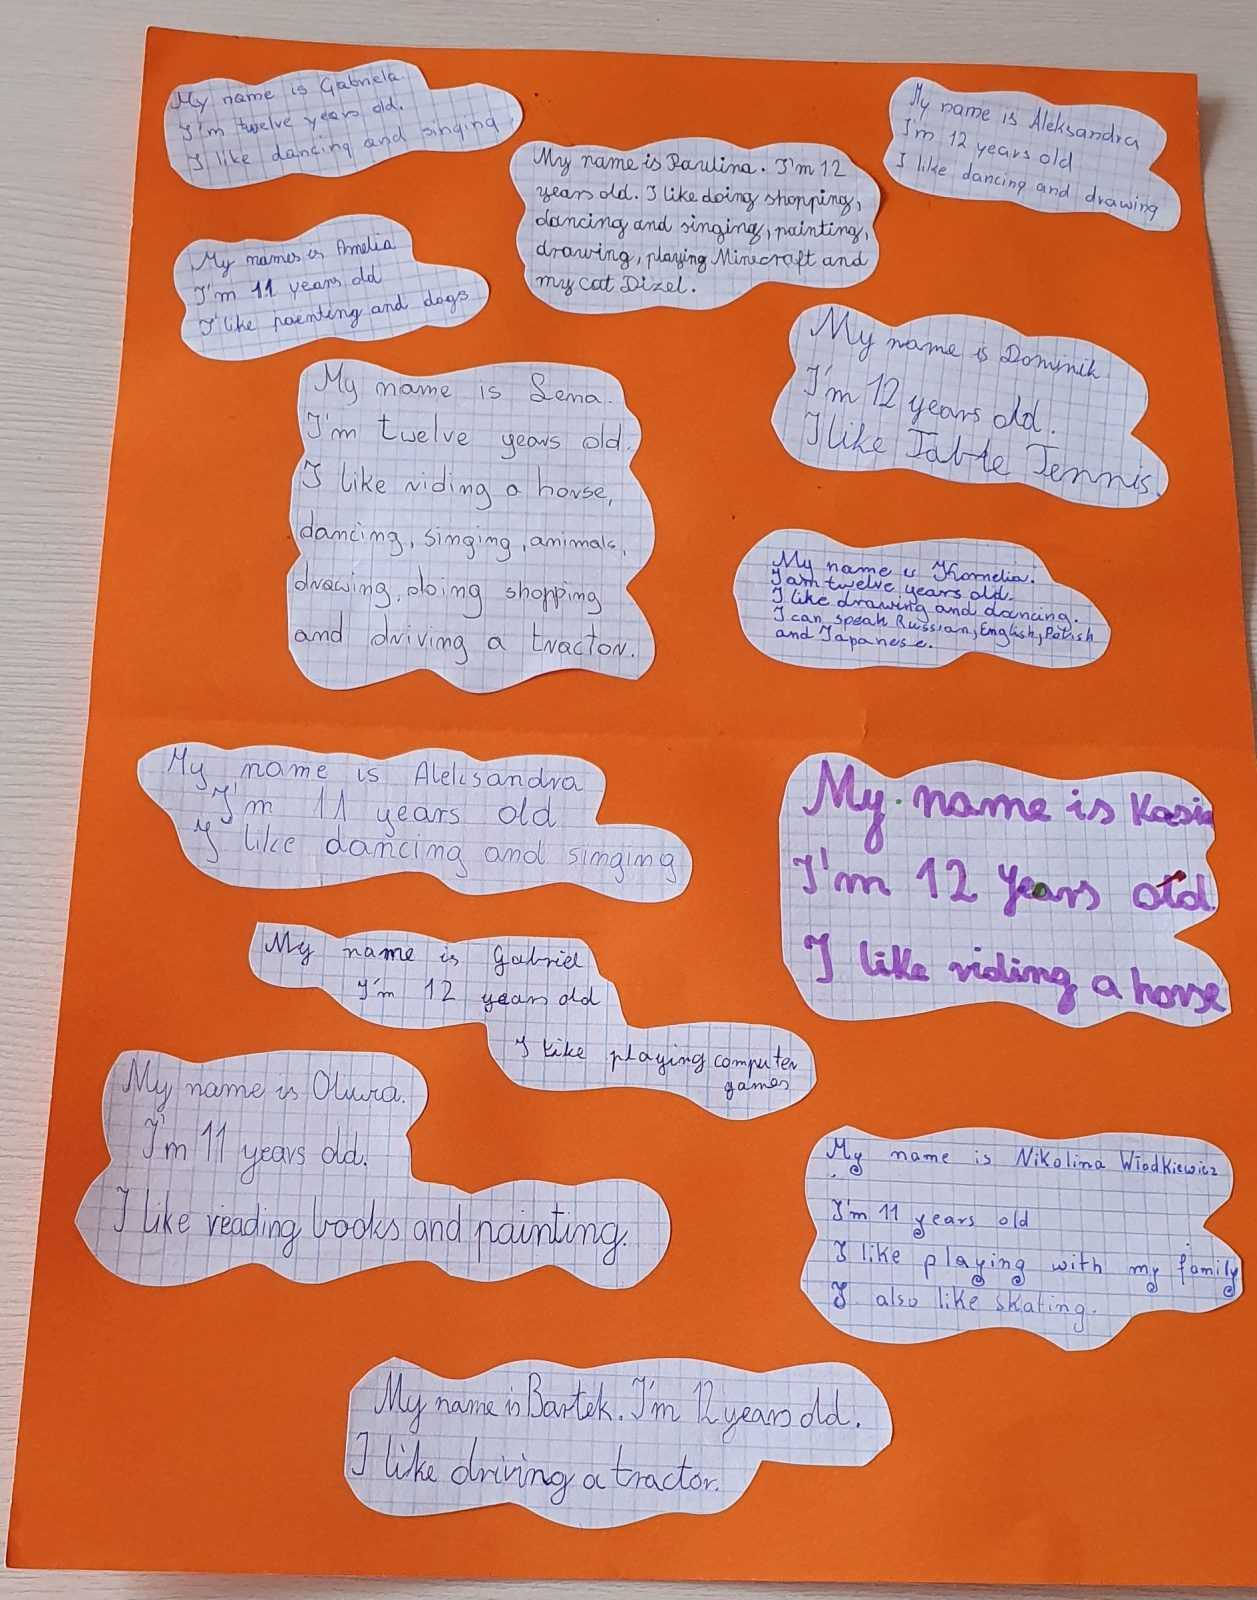 My name is Gabriela.
I'm twelve years old.
I like dancing and singing.
My name is Aleksandra
I'm 12 years old
I like dancing and drawing
My name is Paulina. I'm 12
years old. I like doing shopping,
dancing and singing, painting,
drawing, playing Minecraft and
my cat Dizel.
My names is Amelia
I'm 11 years old
I like paenting and dogs
My name is Dominik.
I'm 12 years old.
I like Table Tennis.
My name is Lena.
I'm twelve years old.
I like riding a horse,
dancing, singing, animals,
drawing, doing shopping
and driving a tractor.
My name is Kornelia.
I am twelve years old.
I like drawing and dancing.
I can speak Russian, English, Polish
and Japanese.
My name is Aleksandra
I'm 11 years old
I like dancing and singing
My name is Kasia
I'm 12 years old.
I like riding a horse
My name is Gabriel
I'm 12 years old
I like playing computer
games
My name is Oliwia.
I'm 11 years old.
I like reading books and painting.
My name is Nikolina Włodkiewicz
I'm 11 years old
I like playing with my family
I also like skating.
My name is Bartek. I'm 12 years old.
I like driving a tractor.